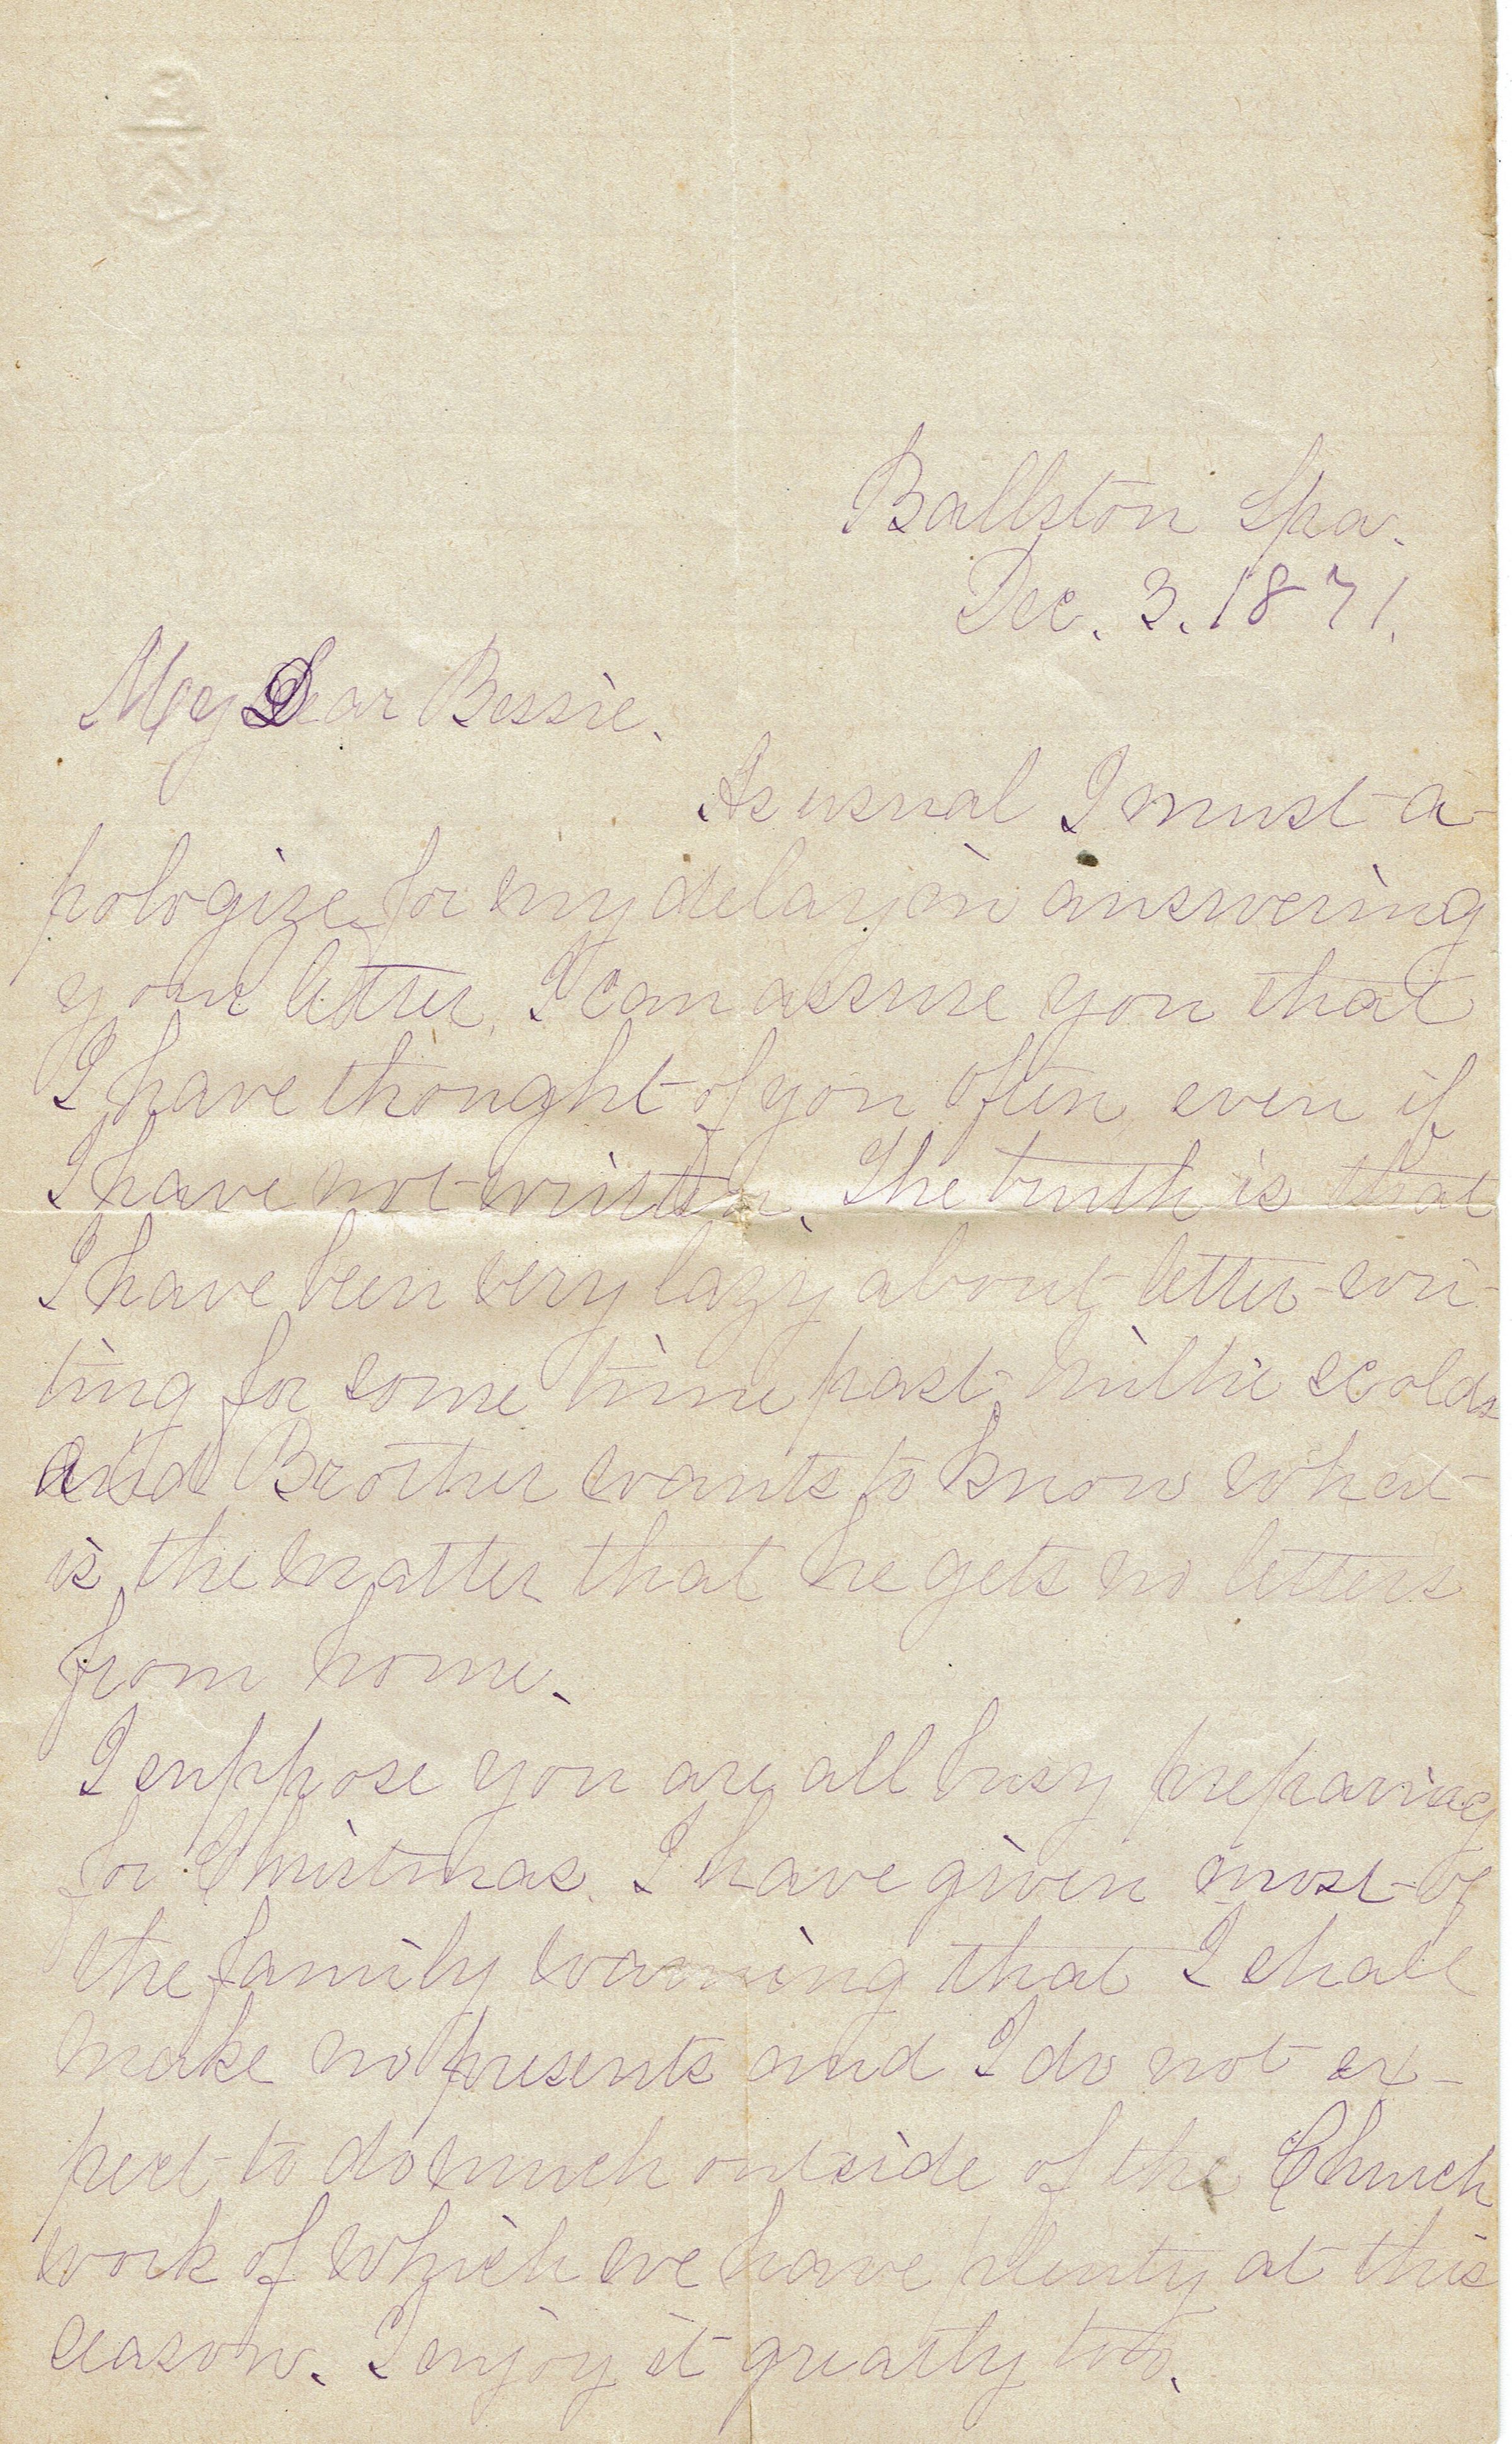 Ballston Spa.
Dec. 3. 1871.
My Dear Bessie.
As usual I must a-
pologize for my delay in answering
your letter. I can assure you that
I have thought of you often even if
I have not written. The truth is that
I have been very lazy about letter-wri-
ting for some time past. Millie scolds
and Brother wants to know what
is the matter that he gets no letters
from home.
I suppose you are all busy preparing
for Christmas. I have given most of
the family warning that I shall
make no presents and I do not ex-
pect to do much outside of the Church
work of which we have plenty at this
season. I enjoy it greatly too.